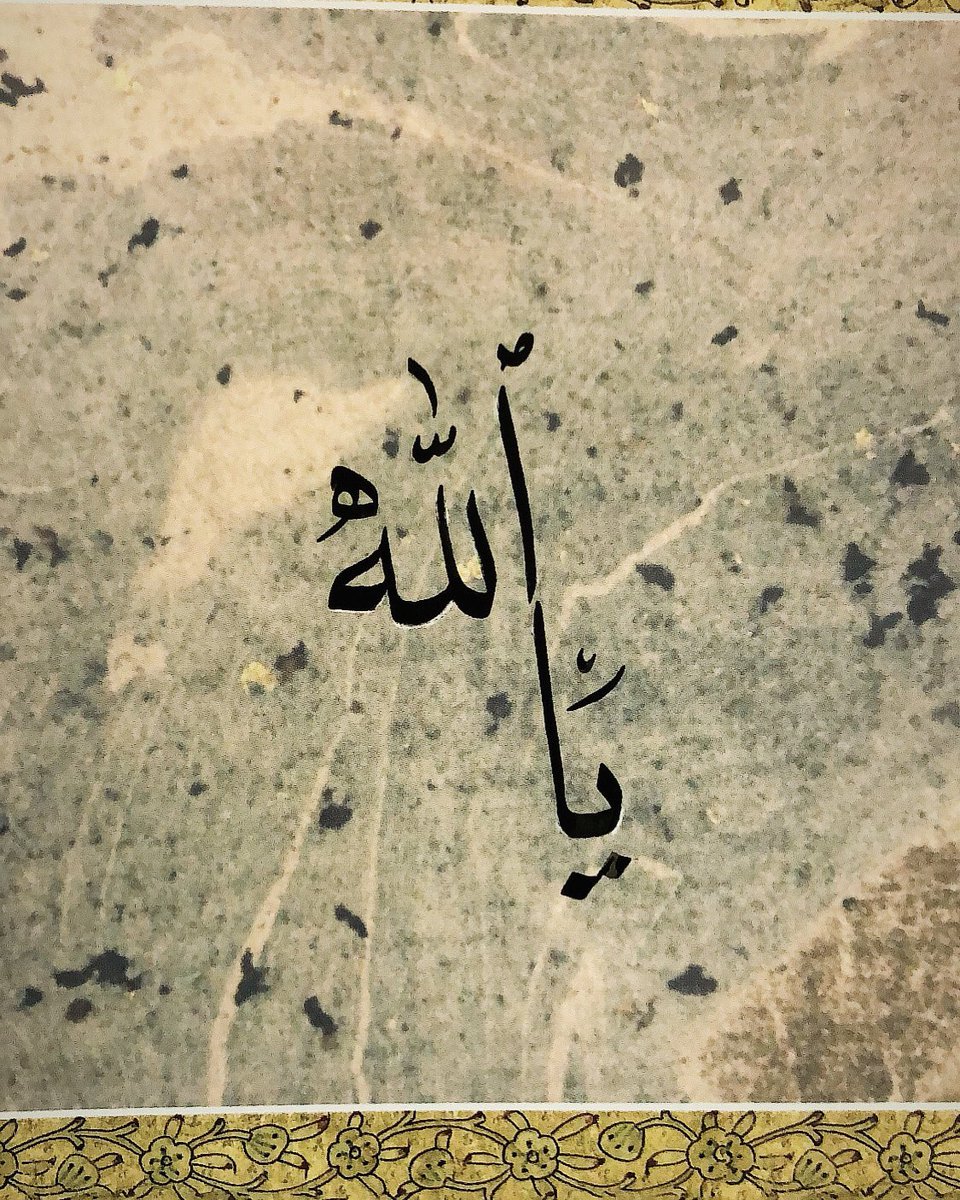 يَا أَللّٰهُ